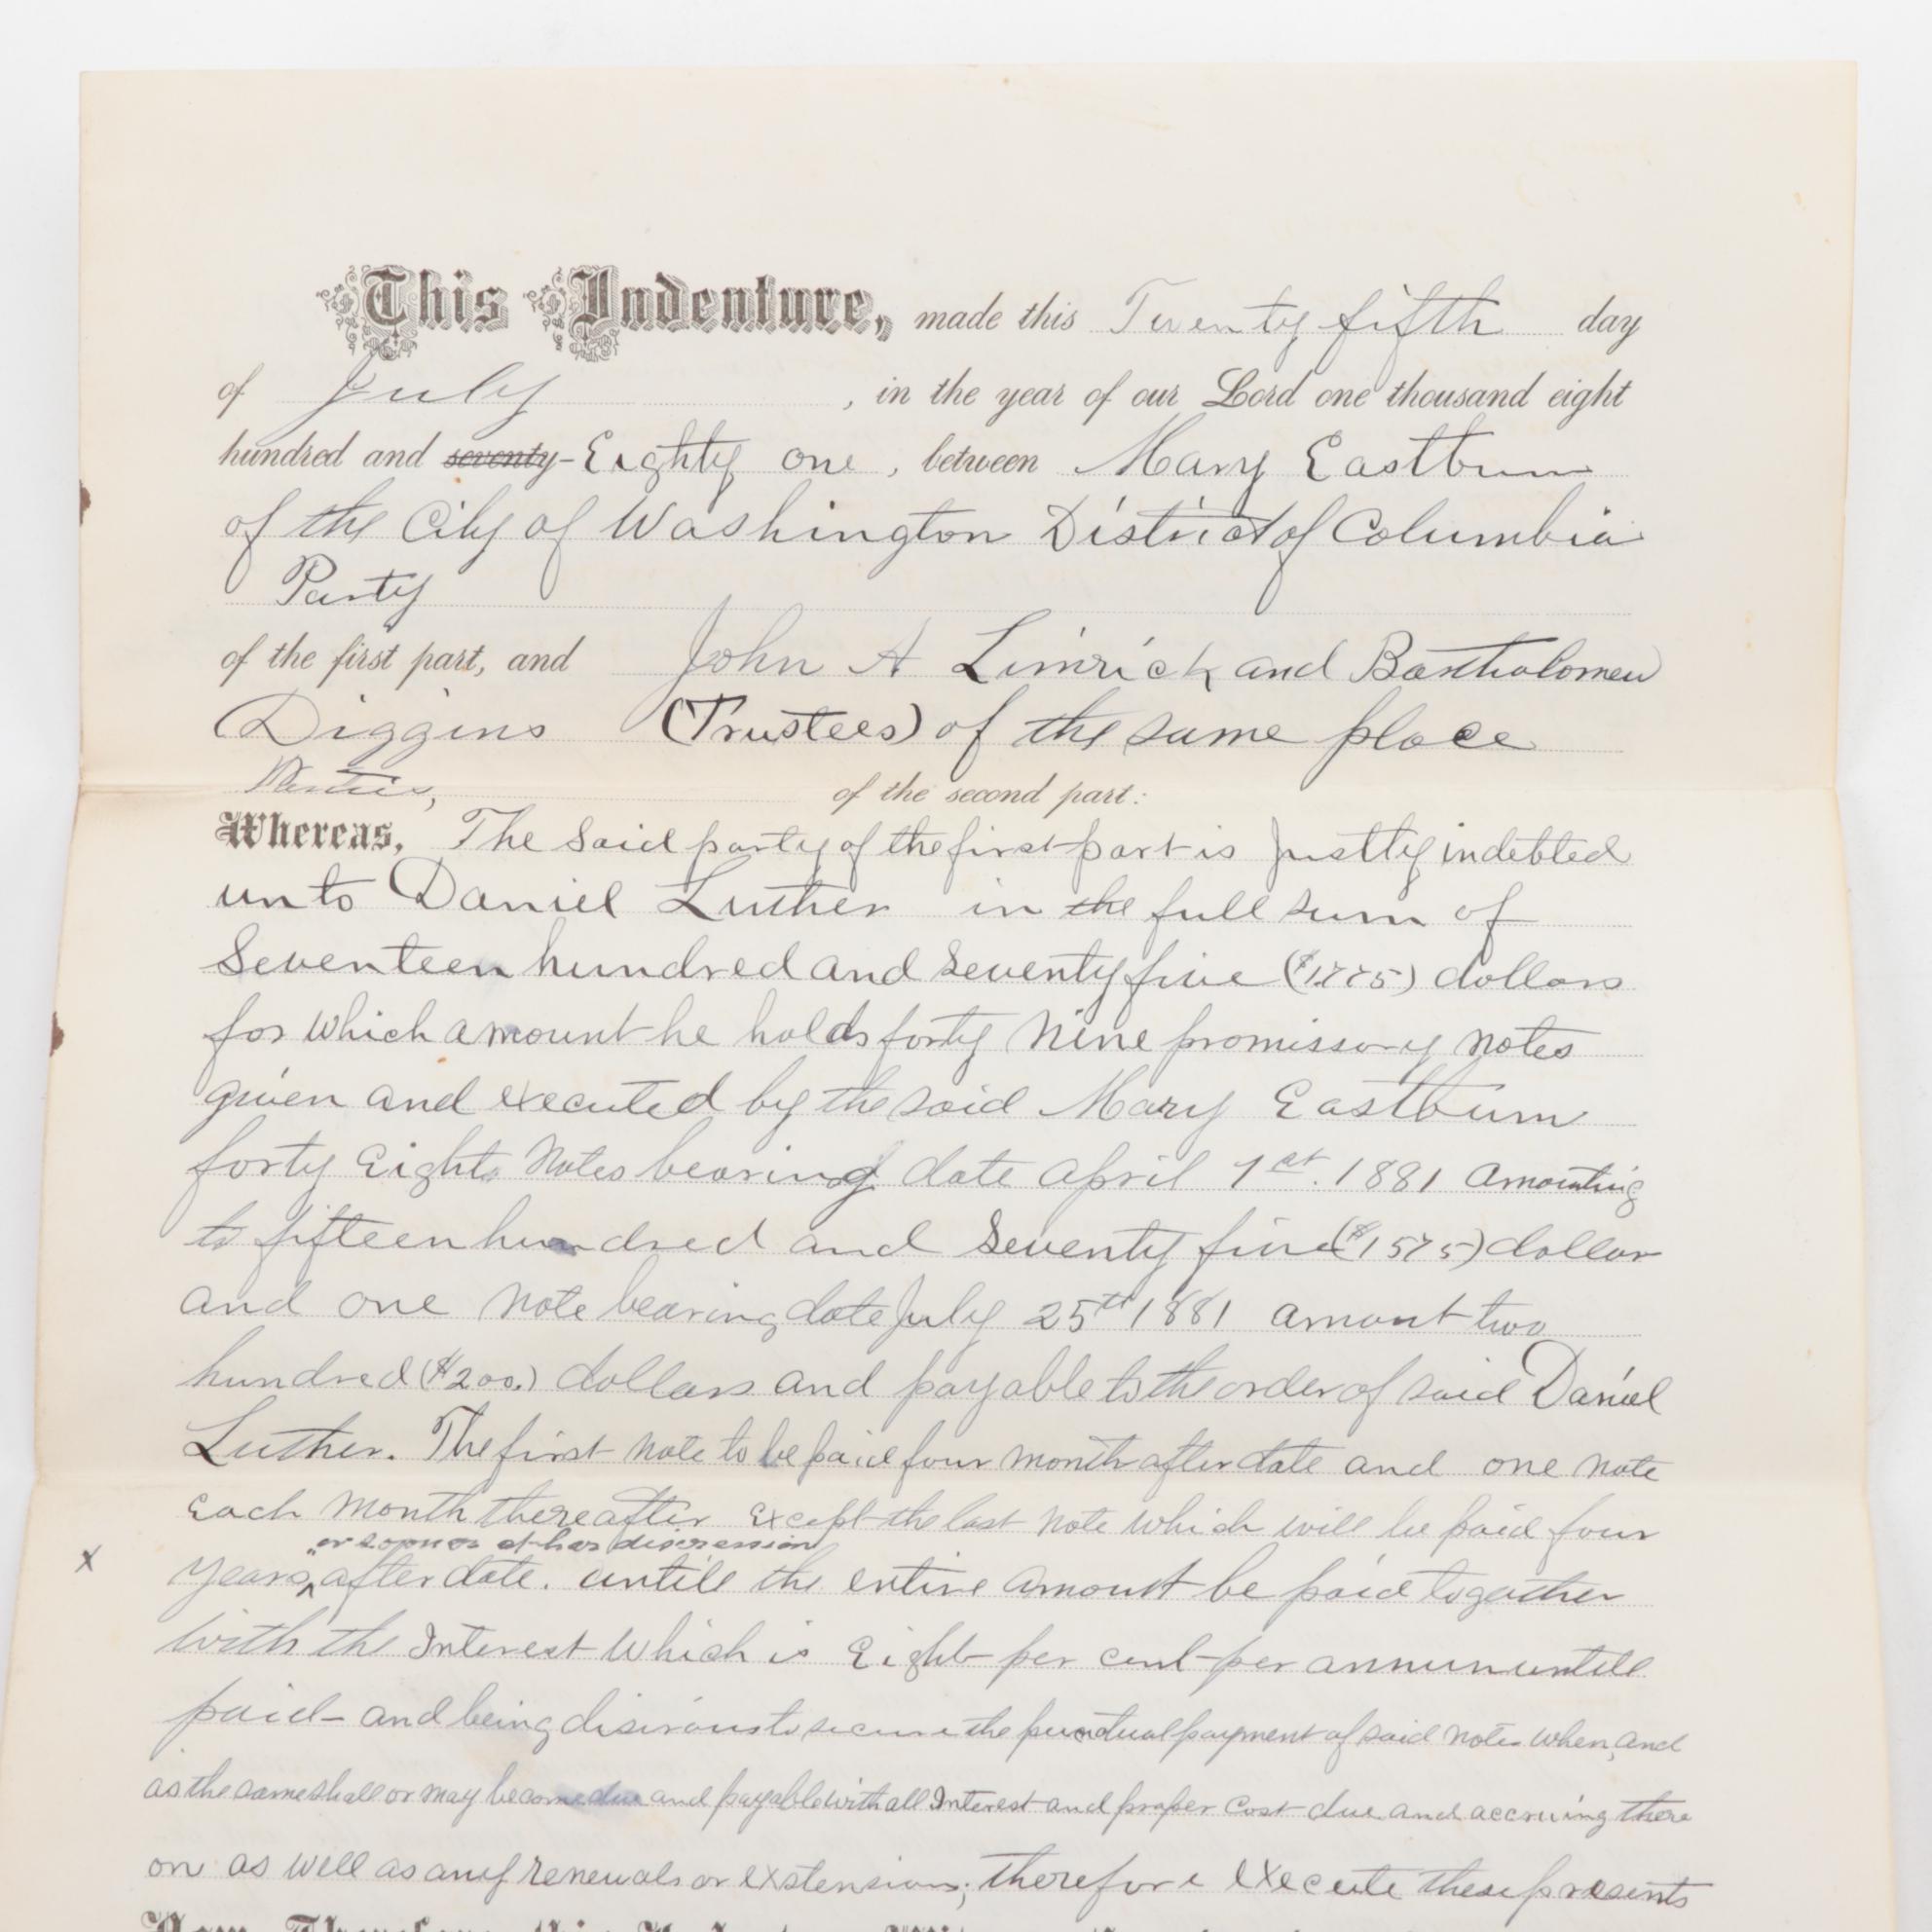 This Indenture, made this Twenty fifth day
of July , in the year of our Lord one thousand eight
hundred and seventy-Eighty one, between Mary Eastburn
of the City of Washington District of Columbia
Party
of the first part, and John A Limrick and Bartholomew
Diggins (Trustees) of the same place
Parties, of the second part:
Whereas, The Said party of the first part is Justly indebted
unto Daniel Luther in the full sum of
Seventeen hundred and Seventy five ($1775) dollars
for which amount he holds forty Nine promissory Notes
given and executed by the said Mary Eastburn
forty Eight Notes bearing date April 1st. 1881 amounting
to fifteen hundred and Seventy five ($1575) dollar
and one Note bearing date July 25th 1881 amount two
hundred ($200.) dollars and payable to the order of said Daniel
Luther. The first Note to be paid four month after date and one Note
Each Month thereafter Except the last Note Which will be paid four
"or sooner at her discression
x years ^ after date. untill the entire amount be paid together
With the Interest Which is Eight per cent per annum untill
paid- and being disirous to secure the punctual payment of said Notes When, and
as the same shall or may become due and payable with all Interest and proper Cost due and accruing there
on as Well as any renewals or exstension; therefore execute these presents